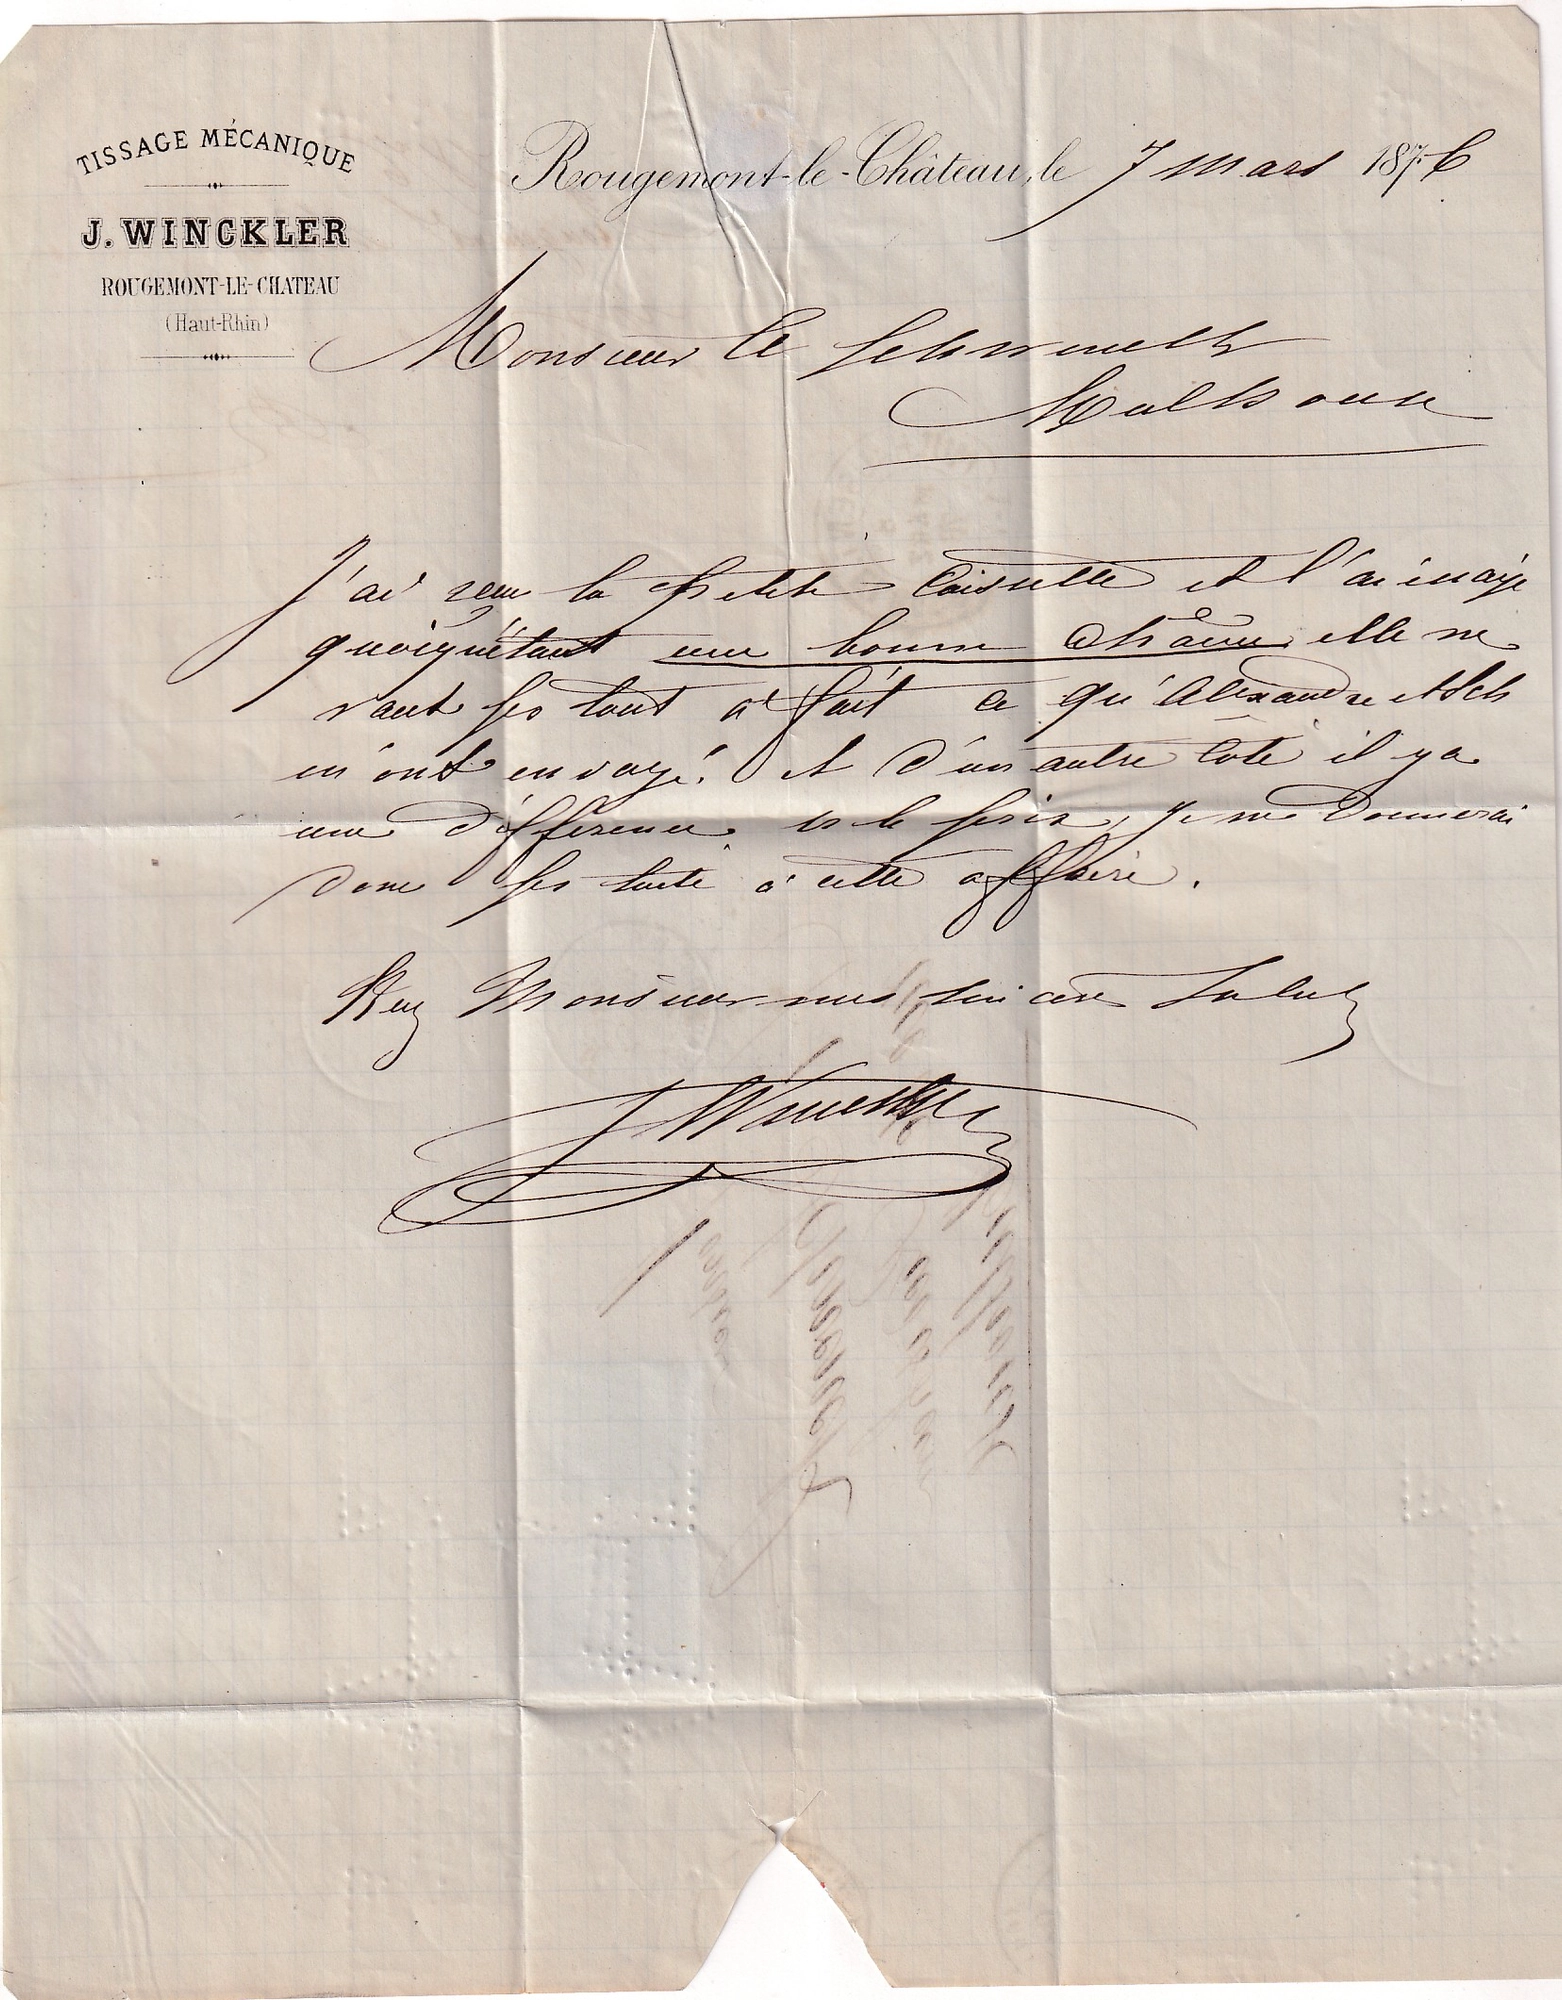 TISSAGE MÉCANIQUE
J. WINCKLER
ROUGEMONT-LE-CHATEAU
(Haut-Rhin)
Rougemont-le-Château, le 7 mars 1876
Monsieur
Mulhouse
J'ai reçu la petite Caissette et l'ai essayé
quoiqu'étant une bonne Chaîne elle ne
vaut pas tout à fait ce qu'Alexandre
m'ont envoyé. et d'un autre coté il y a
une différence le prix, Je ne donnerai
donc pas suite à cette affaire.
Rec Monsieur mes sincères Saluts
J Winckler